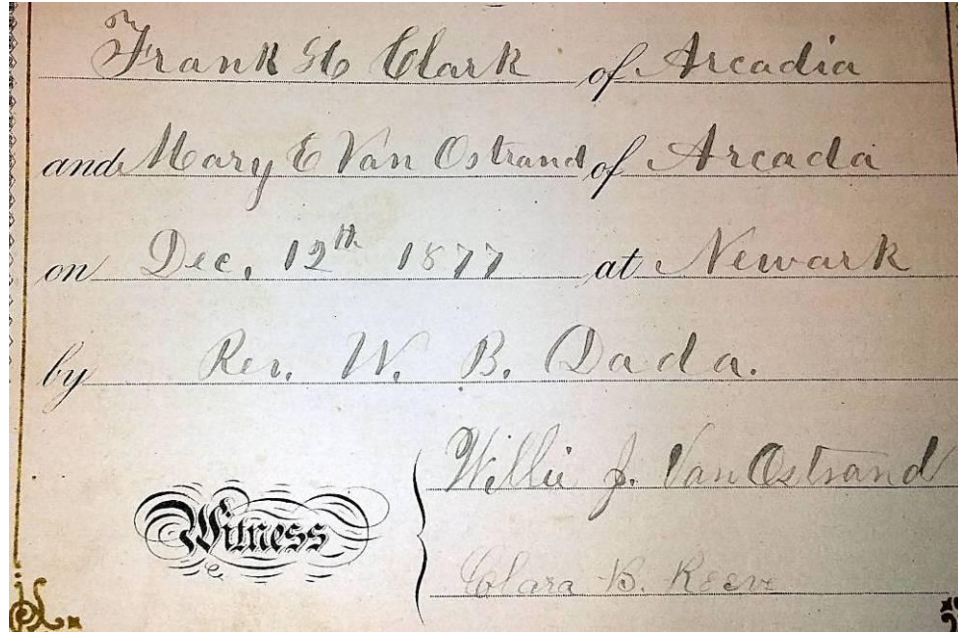 Frank H Clark of Arcadia
and Mary E Van Ostrand of Arcada
on Dec. 12th 1877 at Newark
by Rev. W. B. Dada.
Willie J. Van Ostrand
Witness
Clara B. Reeve